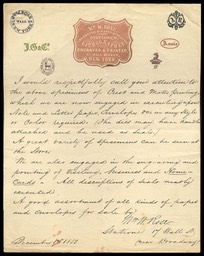 NEW YORK
I would respectfully call your attention to
the above specimens of Crest and Motto Printing
which we are now engaged in executing upon
Note and Letter paper, Envelopes on any style
or Color required. (The dies may have handle
attached and be used as Seals)
A great variety of Specimens can be seen at
the Store
We are also engaged in the engraving and
printing of Visiting, business and Name-
Cards. All descriptions of Seals neatly
executed
A good assortment of all kinds of paper
and Envelopes for Sale by
Wm H.
Stationer 17 Wall St.
near Broadway